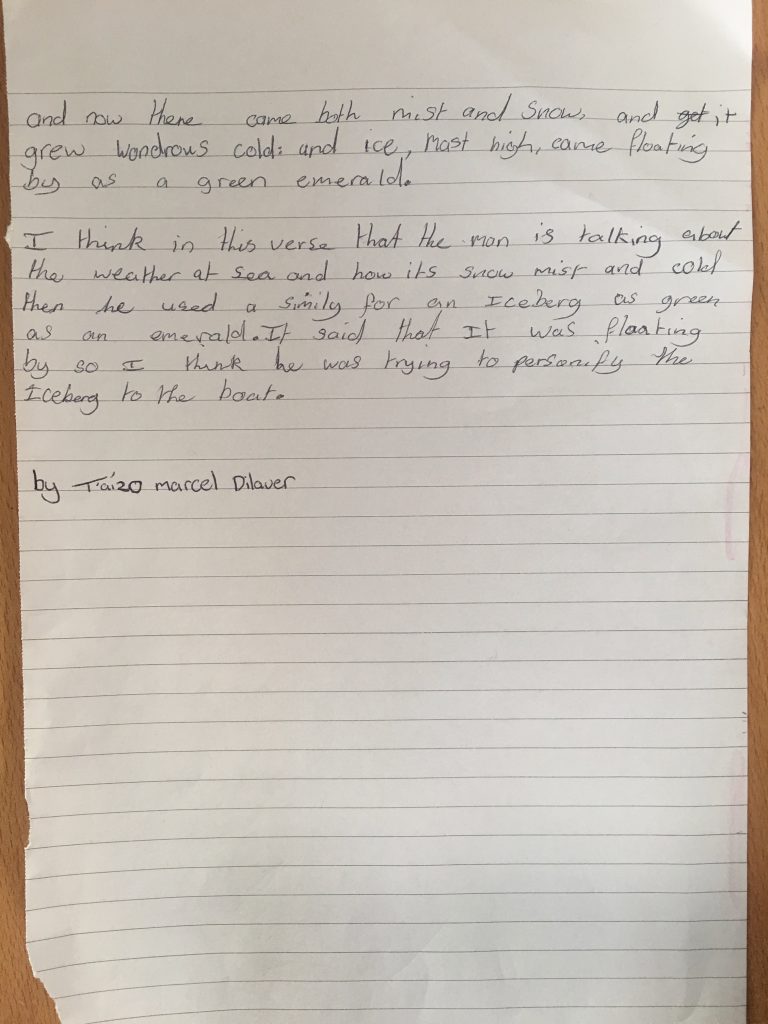 and now there came both mist and snow, and get it
grew wondrous cold: and ice, Mast high, came floating
by as a green emerald.
I think in this verse that the man is talking about
the weather at sea and how its snow mist and cold
then he used a simily for an Iceberg as green
as an emerald. It said that It was floating
by so I think he was trying to personify the
Iceberg to the boat.
by Taizo marcel Dilaver